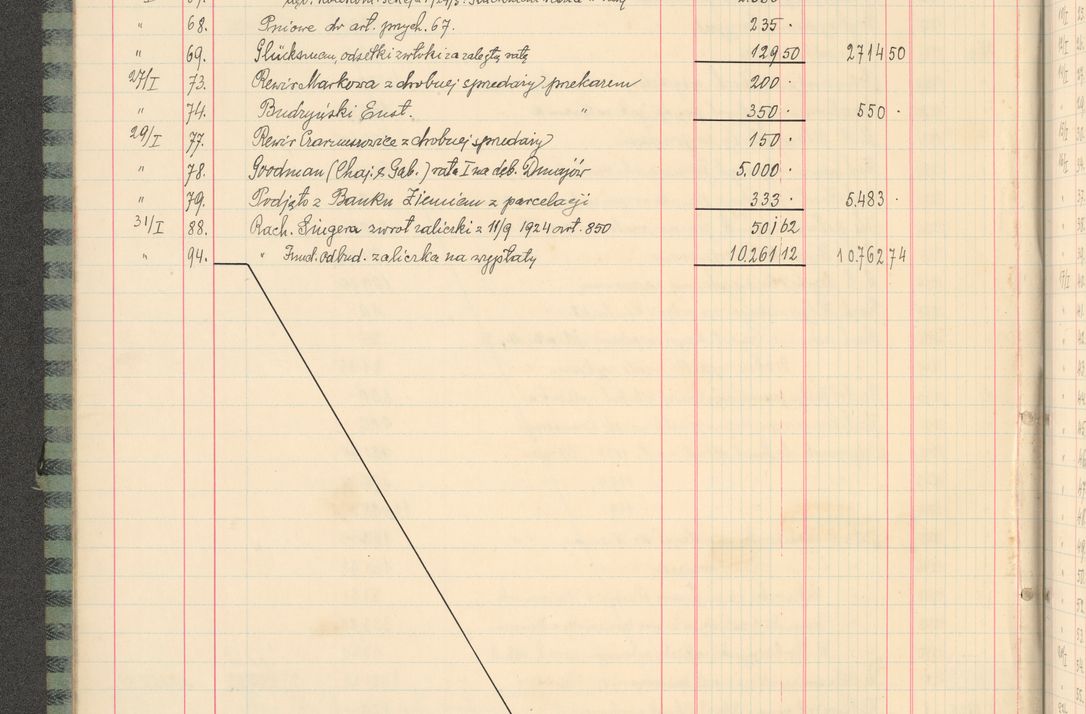 " 68. Pniowe do art. przych. 67. 235 ·
" 69. Glücksman, odsetki zwłoki za zaległą ratę 129 50 2714 50
27/I 73. Rewir Markowa z drobnej sprzedaży przekazem 200 ·
" 74. Budzyński Eust. " 350 · 550 ·
29/I 77. Rewir z drobnej sprzedaży 150 ·
" 78. Goodman (Chaj. & Gab.) rata I na dęb. 5.000 ·
" 79. Podjęto z Banku Ziemian z parcelacji 333 · 5.483 ·
31/I 88. Rach. Singera zwrot zaliczki z 11/9 1924 art. 850 501 62
" 94. " Fund. odbud. zaliczka na wypłaty 10.261 12 10.762 74